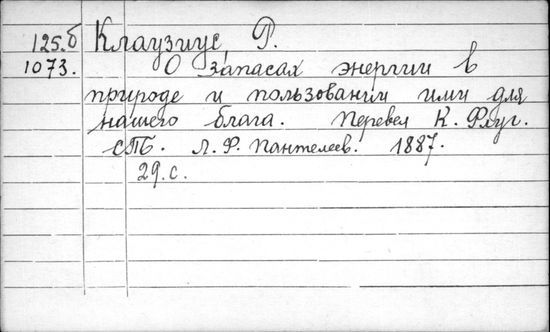 125.б Клаузиус, Р.
1073. О запасах энергии в
природе и пользовании ими для
нашего блага. Перевел К. Флуг.
СПБ. Л. Ф. Пантелеев. 1887.
29.с.